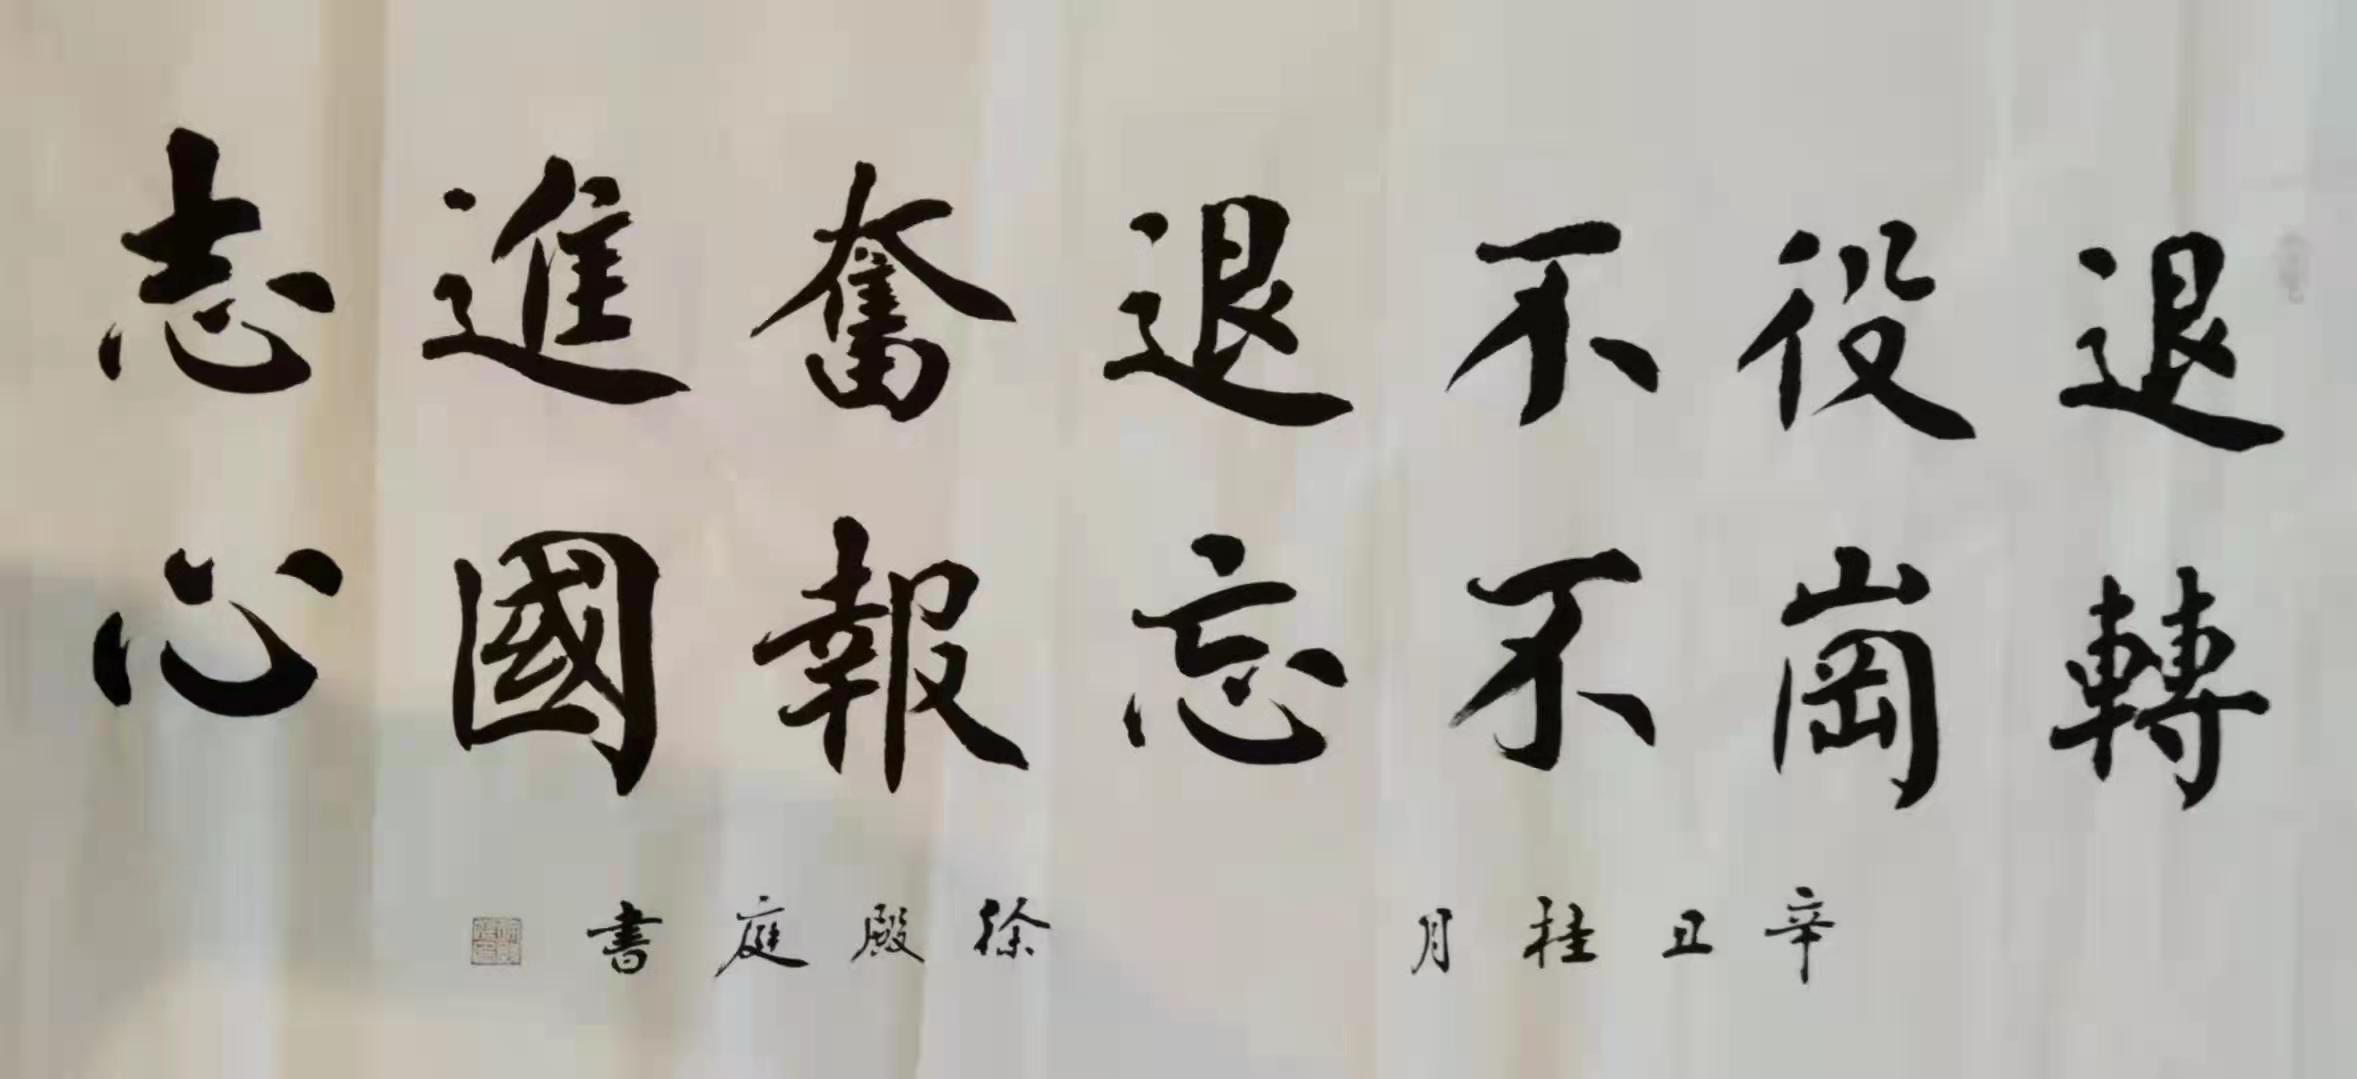 退役不退奮進志
轉崗不忘報國心
辛丑桂月
徐殿庭書